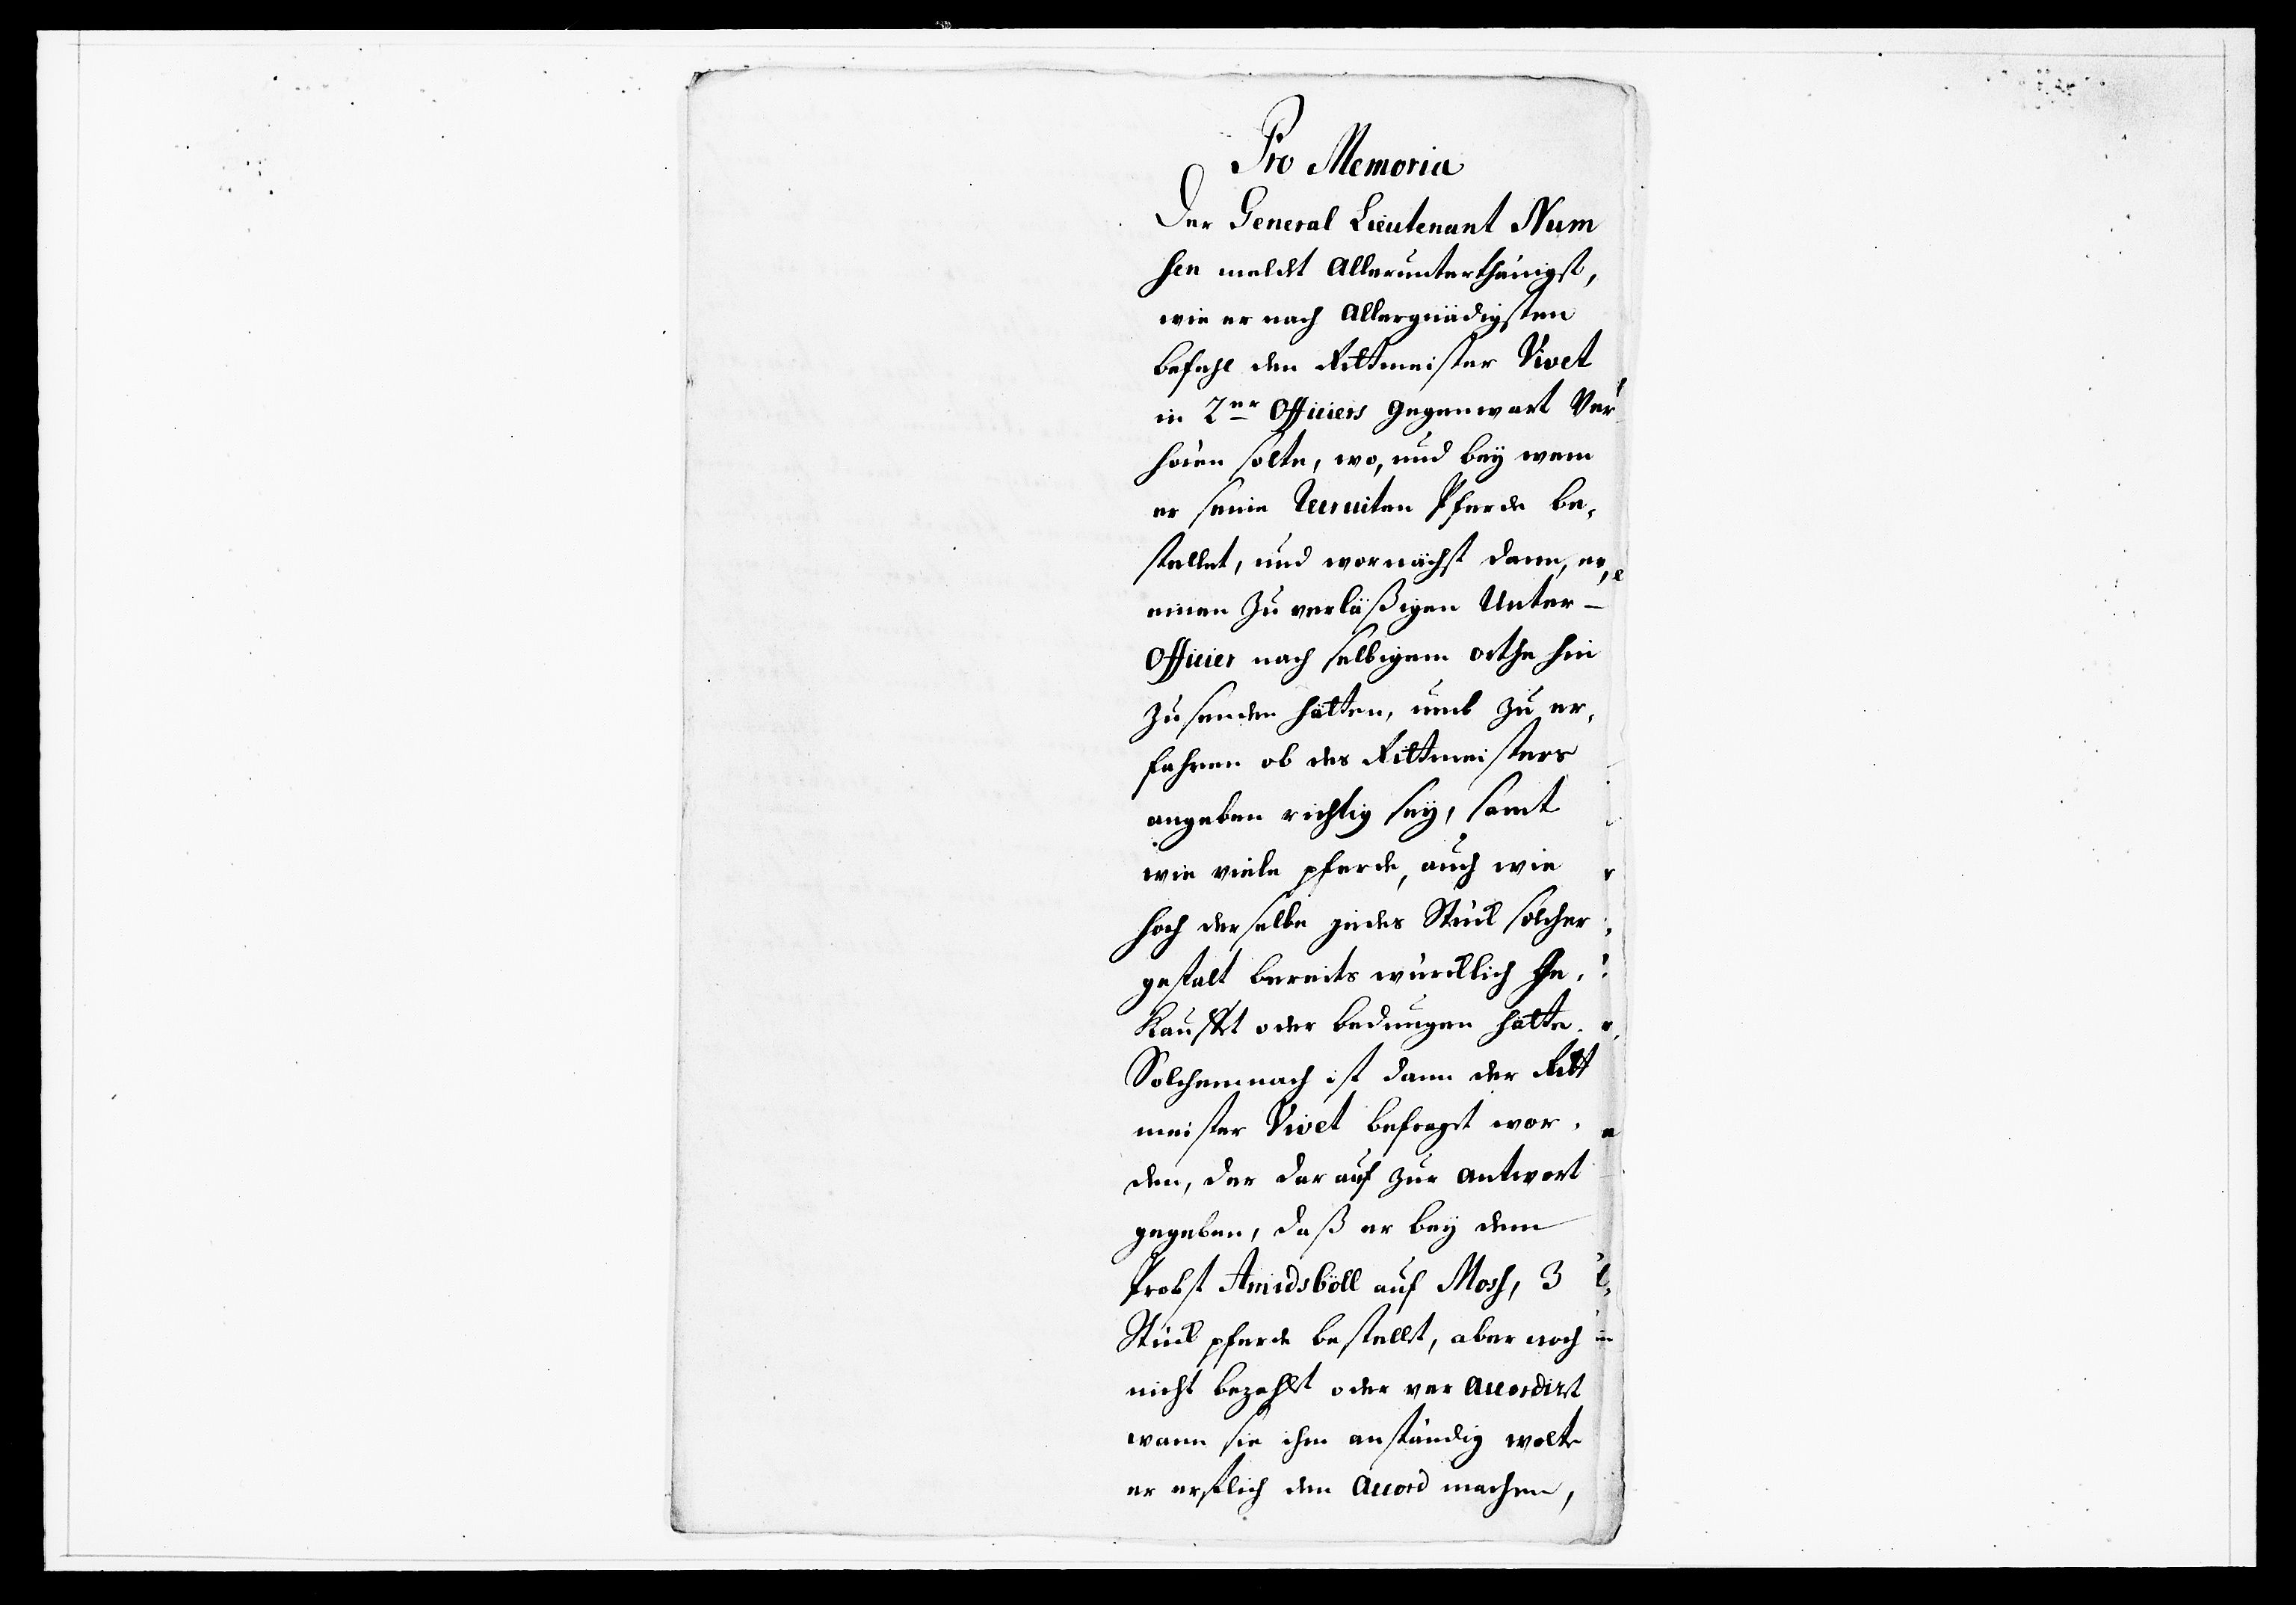 Pro Memoria
Der General Lieutenant Num
sen meldet Allerunterthänigst,
wie er nach Allergnädigsten
befehl den Rittmeister Vivet
in 2er Officiers gegenwart Ver
hören solte, wo, und bey wem
er seine Recruiten Pferde be,
stellet, und wornächst dann, er,
einen zu verläßigen Unter-
Officier nach selbigem orthe hin
zu senden hätten, umb zu er,
fahren ob des Rittmeisters
angeben richtig sey, samt
wie viele pferde, auch wie
hoch derselbe jedes Stück solcher
gestalt bereits würcklich ge,
kaufft oder bedungen hätte.
Solchemnach ist dann der Ritt
meister Vivet befragt wor,
den, der darauf zur antwort
gegeben, daß er bey dem
Probst Amidsböll auf Mosh, 3
Stück pferde bestellt, aber noch
nicht bezahlt oder ver accordirt
wann sie ihm anständig wolte
er erstlich den accord machen,